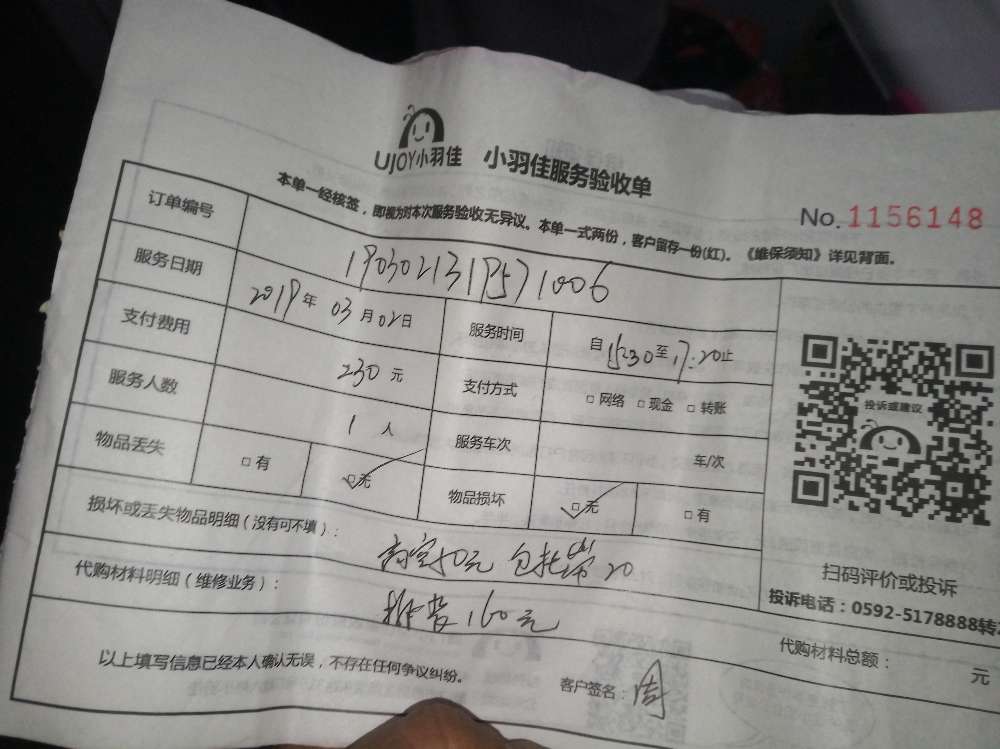 UJOY小羽佳 小羽佳服务验收单
No.1156148
本单一经核签，即视为对本次服务验收无异议。本单一式两份，客户留存一份(红)。《维保须知》详见背面。
订单编号 1903021319571006
服务日期 2019年 03月02日 服务时间 自15:30至17:20止
支付费用 230元 支付方式 □网络 □现金 □转账
服务人数 1人 服务车次 车/次
物品丢失 □有 □无 物品损坏 □无 □有
损坏或丢失物品明细（没有可不填）：
高空50元 包托带20
代购材料明细（维修业务）：
拆装160元
代购材料总额： 元
以上填写信息已经本人确认无误，不存在任何争议纠纷。 客户签名：周
投诉或建议
扫码评价或投诉
投诉电话：0592-5178888转